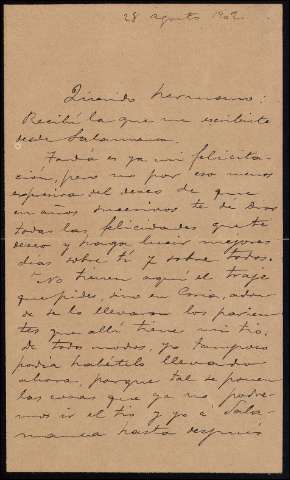 28 agosto 1902
Querido hermano:
Recibí la que me escribiste
desde Salamanca.
Tardía es ya mi felicita-
ción, pero no por eso menos
expresiva del deseo de que
en años sucesivos te dé Dios
todas las felicidades que te
deseo y haga lucir mejores
días sobre tí y sobre todos.
No tienen aquí el traje
que pides, sino en Coria, adon-
de se lo llevaron los parien-
tes que allí tiene mi tio.
De todos modos, yo tampoco
podía habértelo llevado
ahora, porque tal se ponen
las cosas que ya no podre-
mos ir el tio y yo á Sala-
manca hasta después